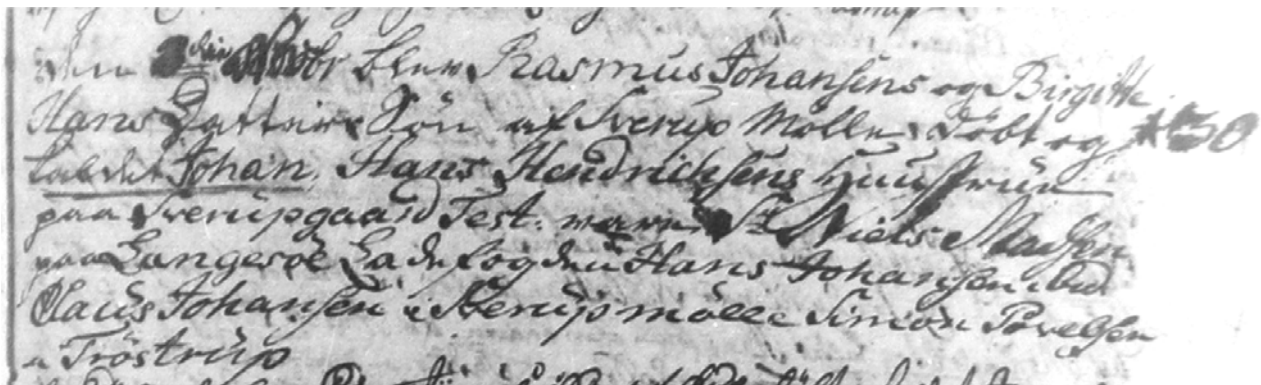 Den Novbr blev Rasmus Johansens og Birgitte
Hans Datters Søn af Sverup Mølle Døbt og 30
kaldet Johan, Hans Hendrichsens Huustrue
paa Sverupgaard Test: ware Sr Niels Madsen
paa Langesøe Ladefogden Hans Johansen ibid
Claus Johansen i Sverupmølle Simon Povelsen
i Tröstrup